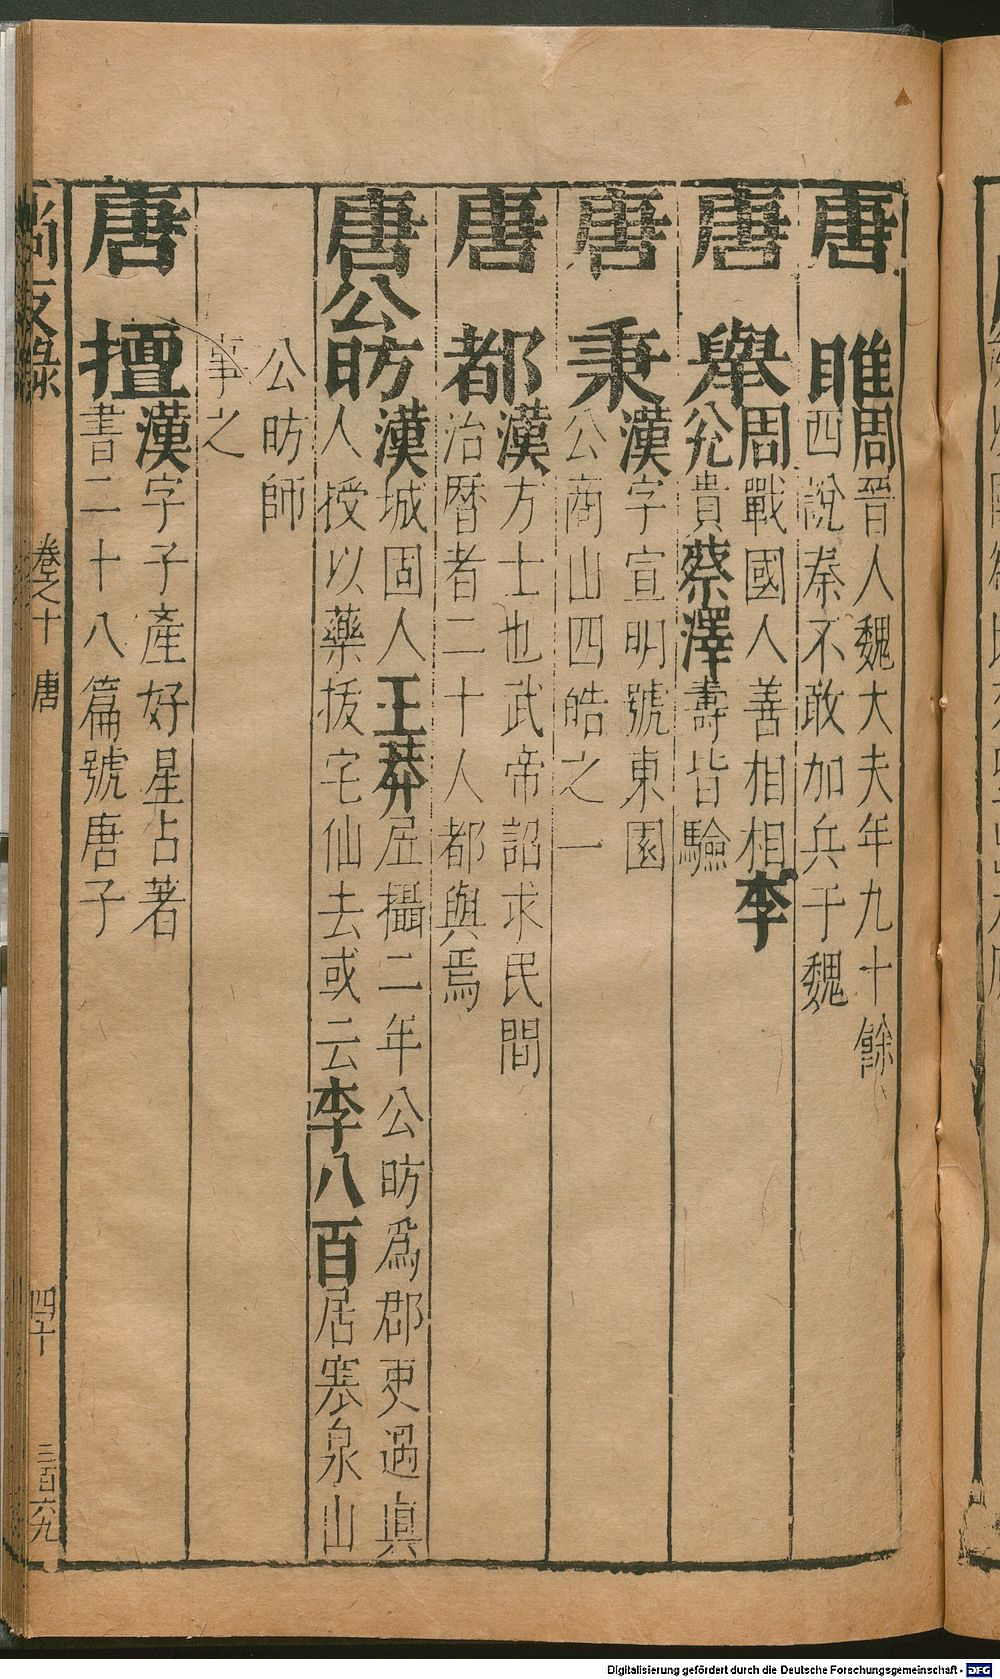 唐睢周晉人魏大夫年九十餘
西說秦不敢加兵于魏
唐舉周戰國人善相相李
兊貴蔡澤壽皆驗
唐秉漢字宣明號東園
公商山四皓之一
唐都漢方士也武帝詔求民間
治曆者二十人都與焉
唐公昉漢城固人王莽居攝二年公昉爲郡吏遇眞
人授以藥拔宅仙去或云李八百居寒泉山
公昉師
事之
唐擅漢字子產好星占著
書二十八篇號唐子
尚友錄 卷之十 唐 四十 三百六九
Digitalisierung gefördert durch die Deutsche Forschungsgemeinschaft - DFG